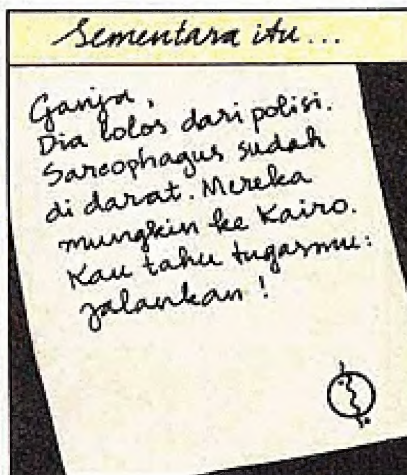 Sementara itu...
Ganja,
Dia lolos dari polisi.
Sarcophagus sudah
di darat. Mereka
mungkin ke Kairo.
Kau tahu tugasmu:
jalankan!